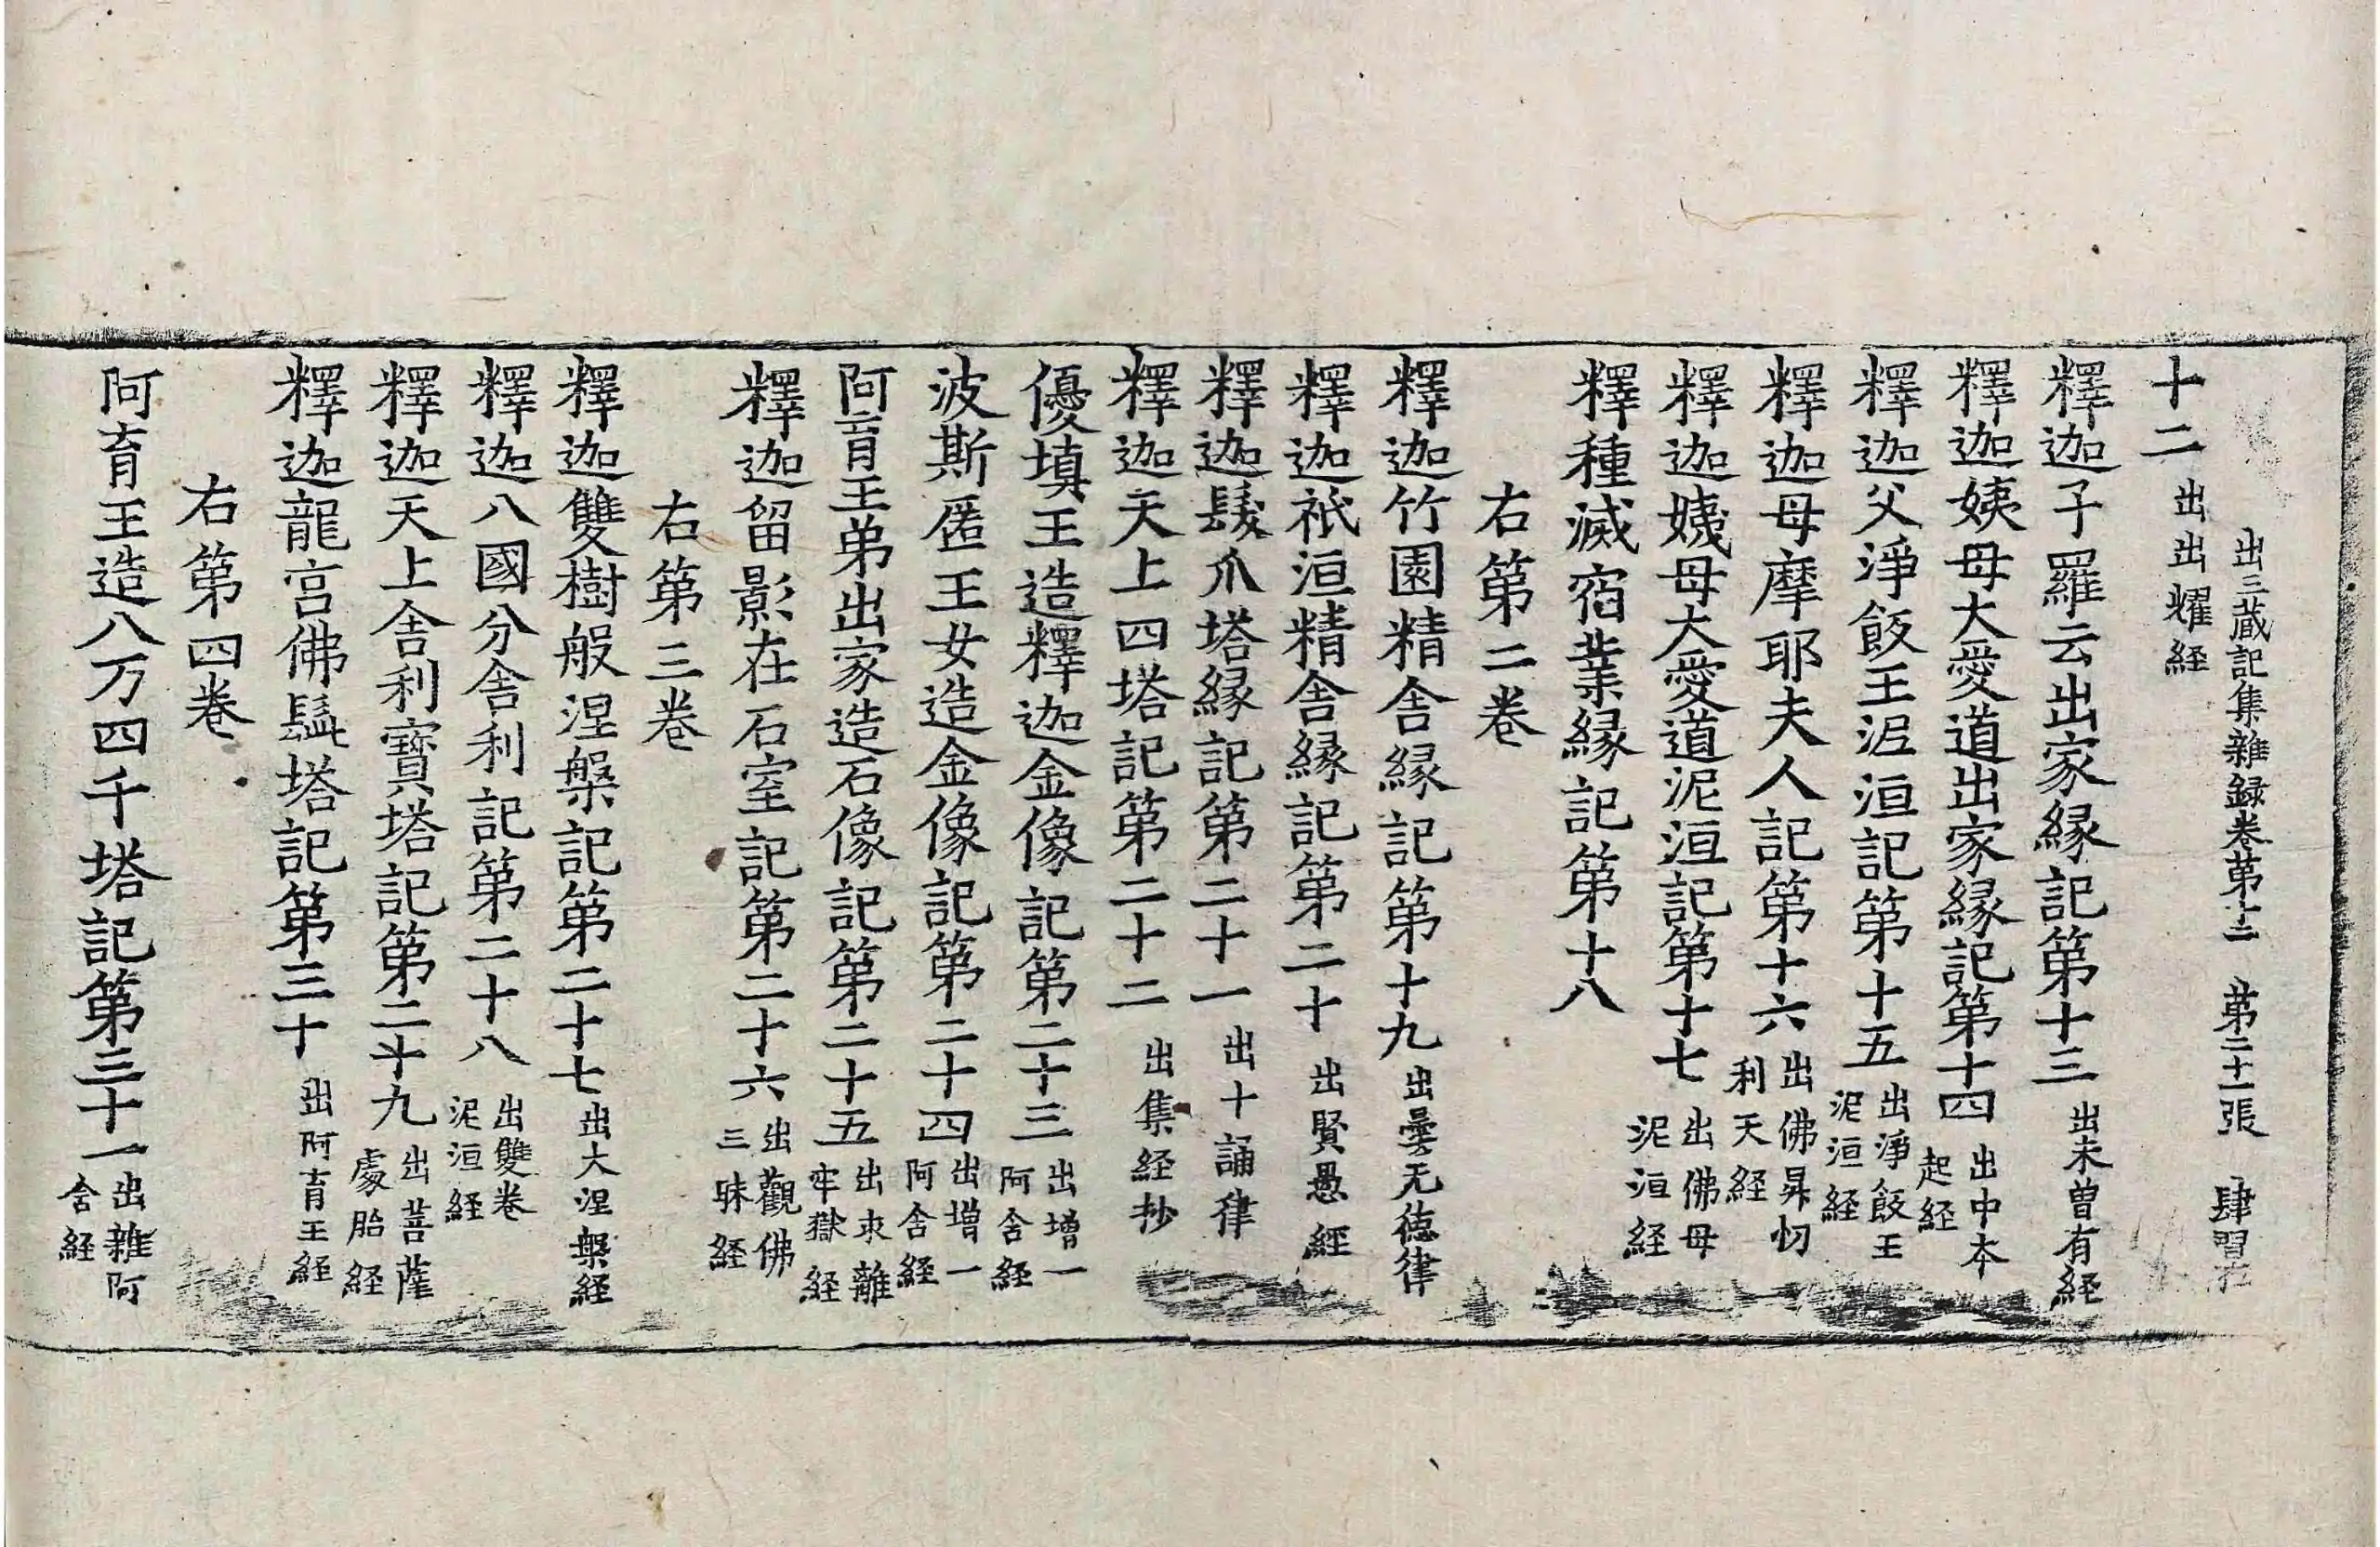 出三蔵記集雜録卷苐十二　苐二十一張　肆
十二出出耀経
釋迦子羅云出家縁記第十三出未曽有経
釋迦姨母大愛道出家縁記第十四出中本起経
釋迦父淨飯王泥洹記第十五出淨飯王泥洹経
釋迦母摩耶夫人記第十六出佛昇忉利天経
釋迦姨母大愛道泥洹記第十七出佛母泥洹経
釋種滅宿業縁記第十八
右第二卷
釋迦竹園精舎縁記第十九出曇无徳律
釋迦祇洹精舎縁記第二十出賢愚經
釋迦髮爪塔縁記第二十一出十誦律
釋迦天上四塔記第二十二出集経抄
優填王造釋迦金像記第二十三出增一阿舍経
波斯匿王女造金像記第二十四出增一阿舍経
阿育王弟出家造石像記第二十五出求離牢獄経
釋迦留影在石室記第二十六出觀佛三昧経
右第三卷
釋迦雙樹般涅槃記第二十七出大涅槃経
釋迦八國分舎利記第二十八出雙卷泥洹経
釋迦天上舎利寶塔記第二十九出菩薩處胎経
釋迦龍宮佛髭塔記第三十出阿育王経
右第四卷
阿育王造八万四千塔記第三十一出雜阿舍経